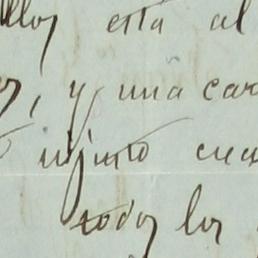 ellos está al
y una car
injusto cua
todos los